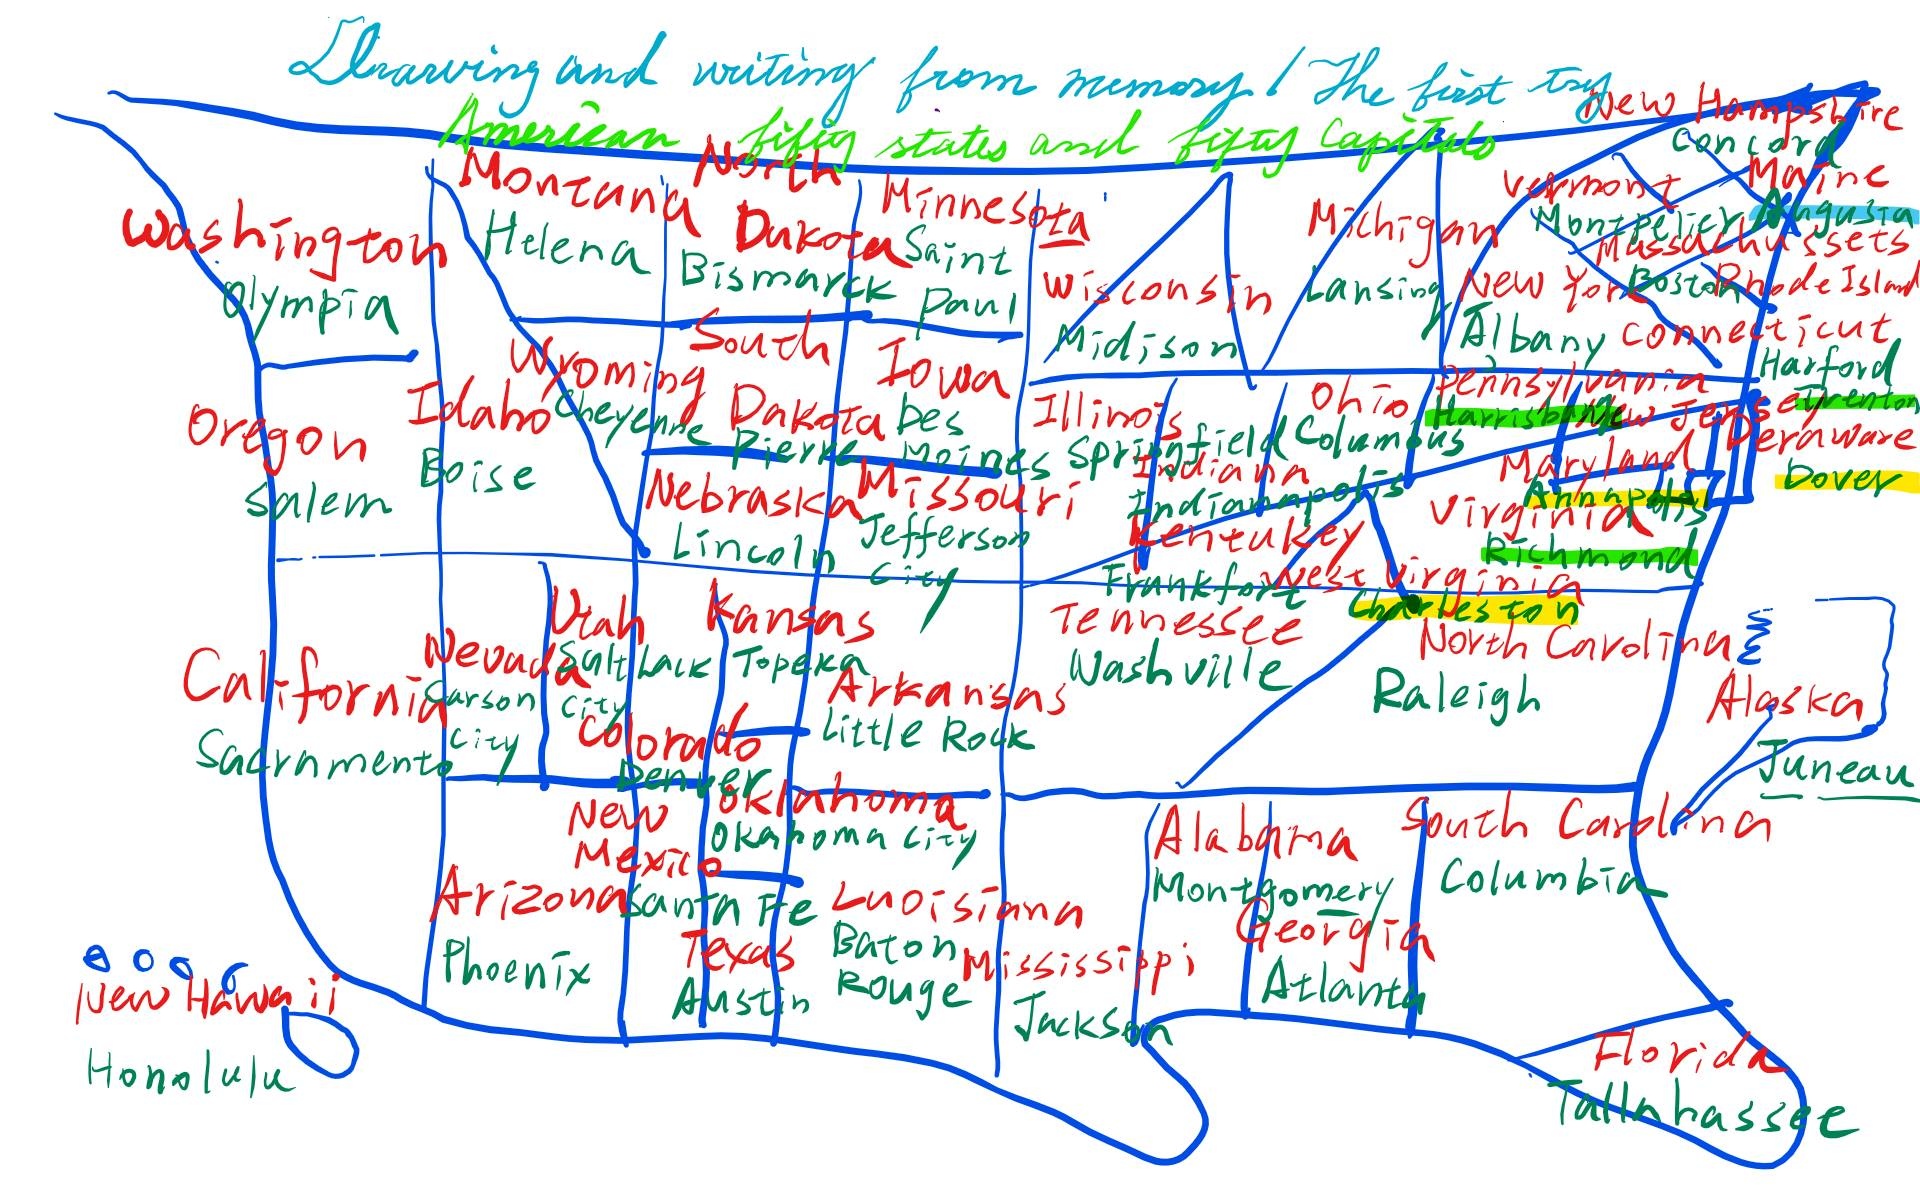 Drawing and writing from memory! The first try
American fifty states and fifty Capitals
Washington
Olympia
Oregon
Salem
California
Sacramento
New Hawaii
Honolulu
Idaho
Boise
Nevada
Carson
City
Arizona
Phoenix
Montana
Helena
Wyoming
Cheyenne
Utah
Salt Lack
City
Colorado
Denver
New
Mexico
Santa Fe
North
Dakota
Bismarck
South
Dakota
Pierre
Nebraska
Lincoln
Kansas
Topeka
Oklahoma
Okahoma City
Texas
Austin
Minnesota
Saint
Paul
Iowa
Des
Moines
Missouri
Jefferson
City
Arkansas
Little Rock
Luoisiana
Baton
Rouge
Mississippi
Jackson
Wisconsin
Midison
Illinois
Springfield
Indiana
Indianapolis
Kentukey
Frankfort
Tennessee
Washville
Alabama
Montgomery
Georgia
Atlanta
Michigan
Lansing
Ohio
Columbus
West Virginia
Charleston
North Carolina
Raleigh
South Carolina
Columbia
Florida
Tallahassee
New Hampshire
Concord
Maine
Augusta
Vermont
Montpelier
Massachussets
Boston
Rhode Island
New York
Albany
Connecticut
Harford
Pennsylvania
Harrisburg
New Jersey
Trenton
Deraware
Dover
Maryland
Annapolis
Virginia
Richmond
Alaska
Juneau